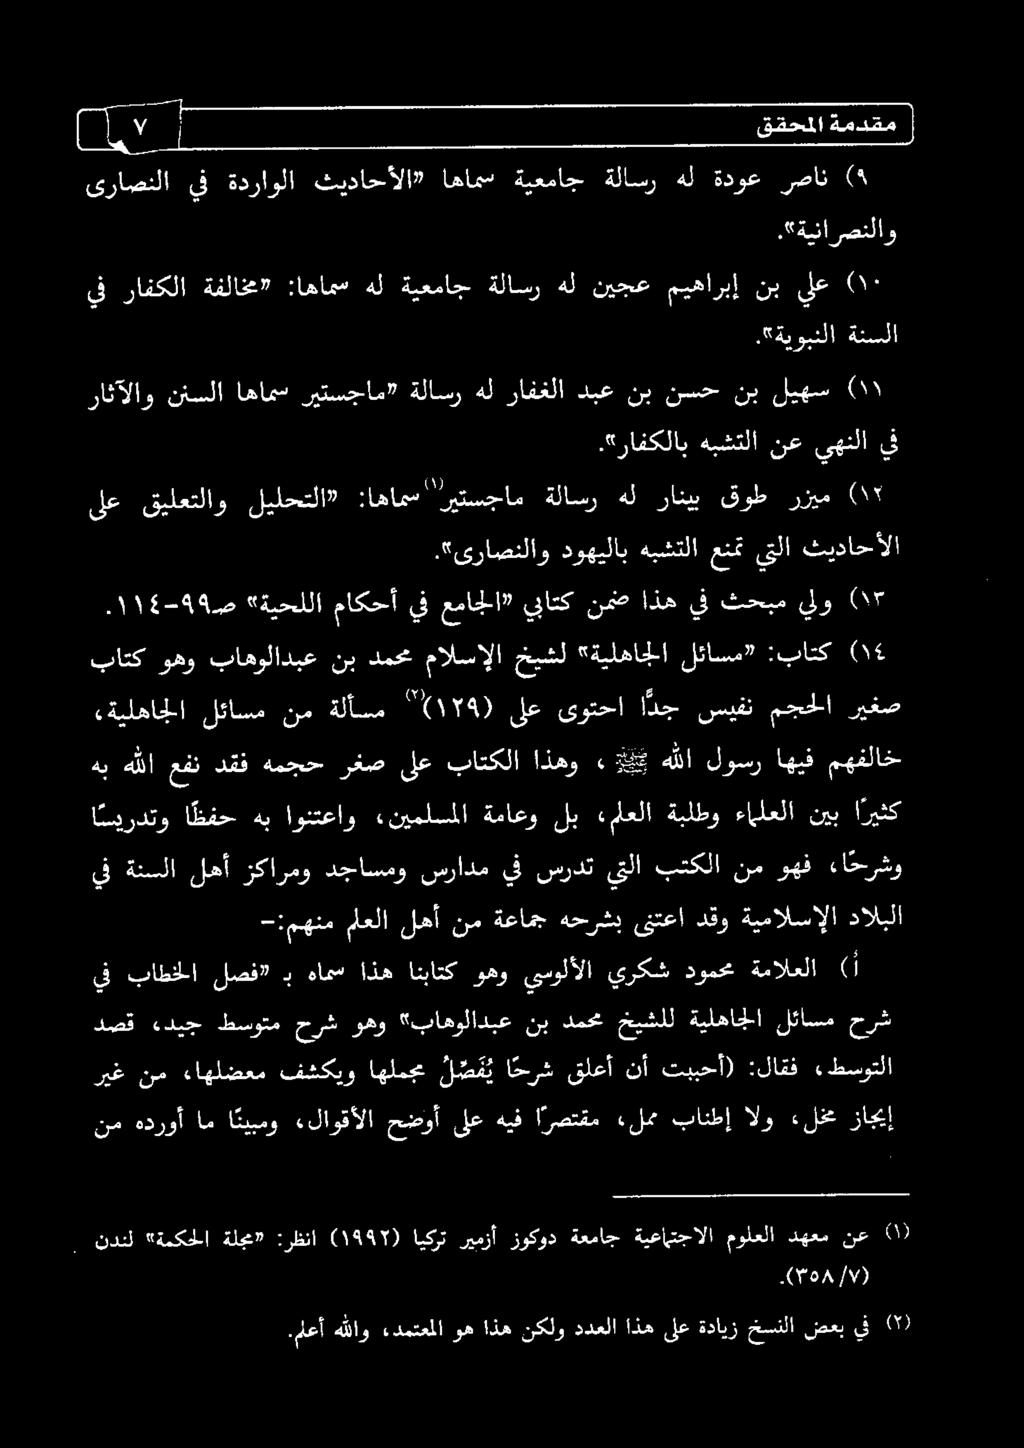 مقدمة المحقق
٧
٩) ناصر عودة له رسالة جامعية سماها «الأحاديث الواردة في النصارى
والنصرانية».
١٠) علي بن إبراهيم عجين له رسالة جامعية له سماها: «مخالفة الكفار في
السنة النبوية».
١١) سهيل بن حسن بن عبد الغفار له رسالة «ماجستير سماها السنن والآثار
في النهي عن التشبه بالكفار».
١٢) ميزر طوق بينار له رسالة ماجستير(١) سماها: «التحليل والتعليق على
الأحاديث التي تمنع التشبه باليهود والنصارى».
١٣) ولي مبحث في هذا ضمن كتابي «الجامع في أحكام اللحية» صـ٩٩-١١٤.
١٤) كتاب: «مسائل الجاهلية» لشيخ الإسلام محمد بن عبدالوهاب وهو كتاب
صغير الحجم نفيس جدًّا احتوى على (١٢٩)(٢) مسألة من مسائل الجاهلية،
خالفهم فيها رسول الله ﷺ، وهذا الكتاب على صغر حجمه فقد نفع الله به
كثيرًا بين العلماء وطلبة العلم، بل وعامة المسلمين، واعتنوا به حفظًا وتدريسًا
وشرحًا، فهو من الكتب التي تدرس في مدارس ومساجد ومراكز أهل السنة في
البلاد الإسلامية وقد اعتنى بشرحه جماعة من أهل العلم منهم:-
أ) العلامة محمود شكري الألوسي وهو كتابنا هذا سماه بـ «فصل الخطاب في
شرح مسائل الجاهلية للشيخ محمد بن عبدالوهاب» وهو شرح متوسط جيد، قصد
التوسط، فقال: (أحببت أن أعلق شرحًا يُفَصِّلُ مجملها ويكشف معضلها، من غير
إيجاز مخل، ولا إطناب ممل، مقتصرًا فيه على أوضح الأقوال، ومبينًا ما أورده من
(١) عن معهد العلوم الاجتماعية جامعة دوكوز أزمير تركيا (١٩٩٢) انظر: «مجلة الحكمة» لندن
(٧/ ٣٥٨).
(٢) في بعض النسخ زيادة على هذا العدد ولكن هذا هو المعتمد، والله أعلم.